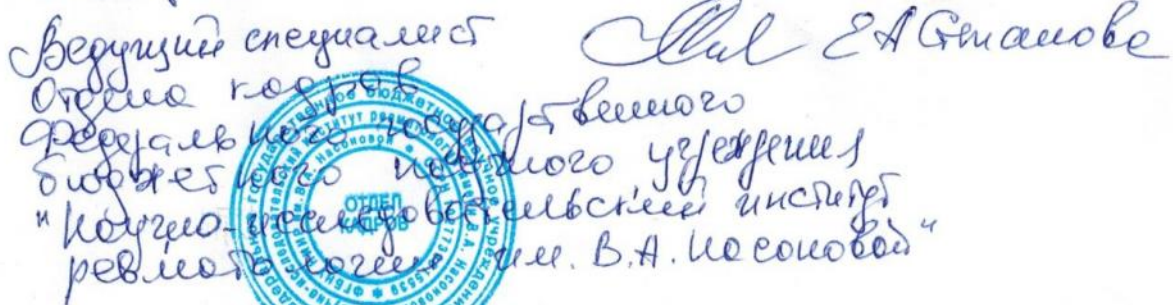 Ведущий специалист
Е.А. Степанова
Отдела кадров
Федерального государственного
бюджетного научного учреждения
"Научно-исследовательский институт
ревматологии им. В.А. Насоновой"
ОТДЕЛ
КАДРОВ